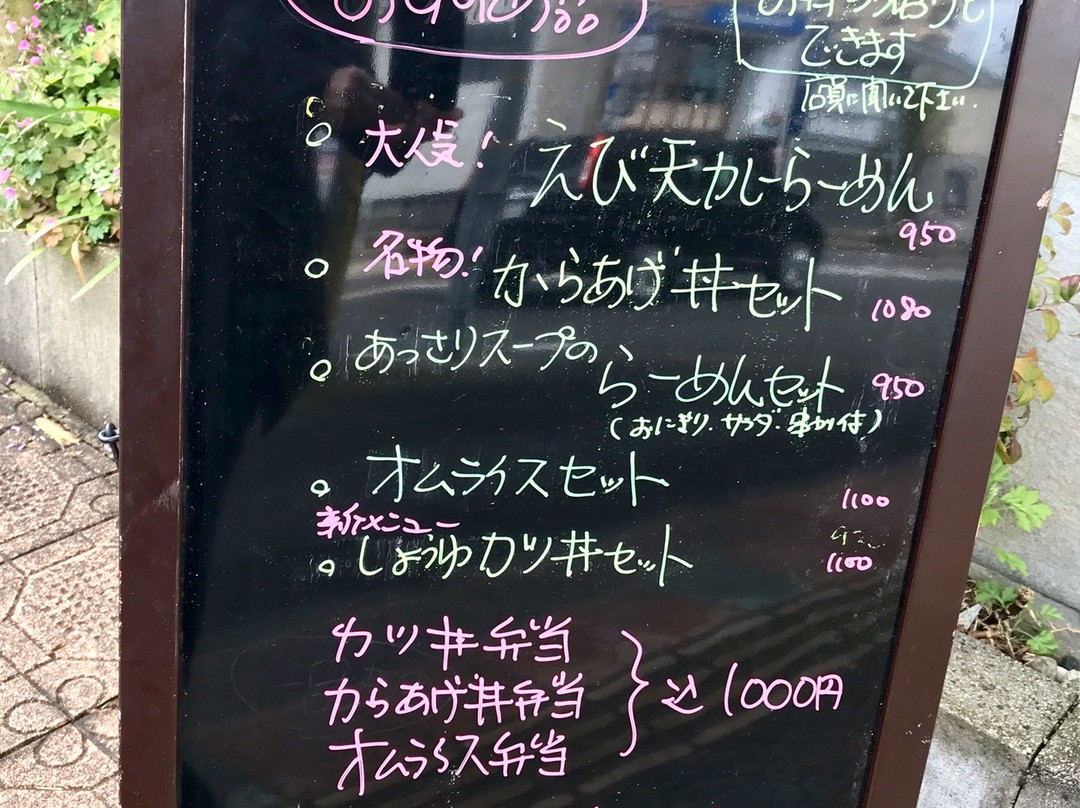 できます
店頭に聞いて下さい.
大人気! えび天カレーらーめん
950
名物! からあげ丼セット 1080
あっさりスープの
らーめんセット 950
(おにぎり.サラダ.

オムライスセット 1100
新メニュー
しょうゆカツ丼セット 1100
カツ丼弁当
からあげ丼弁当
オムライス弁当
込 1000円